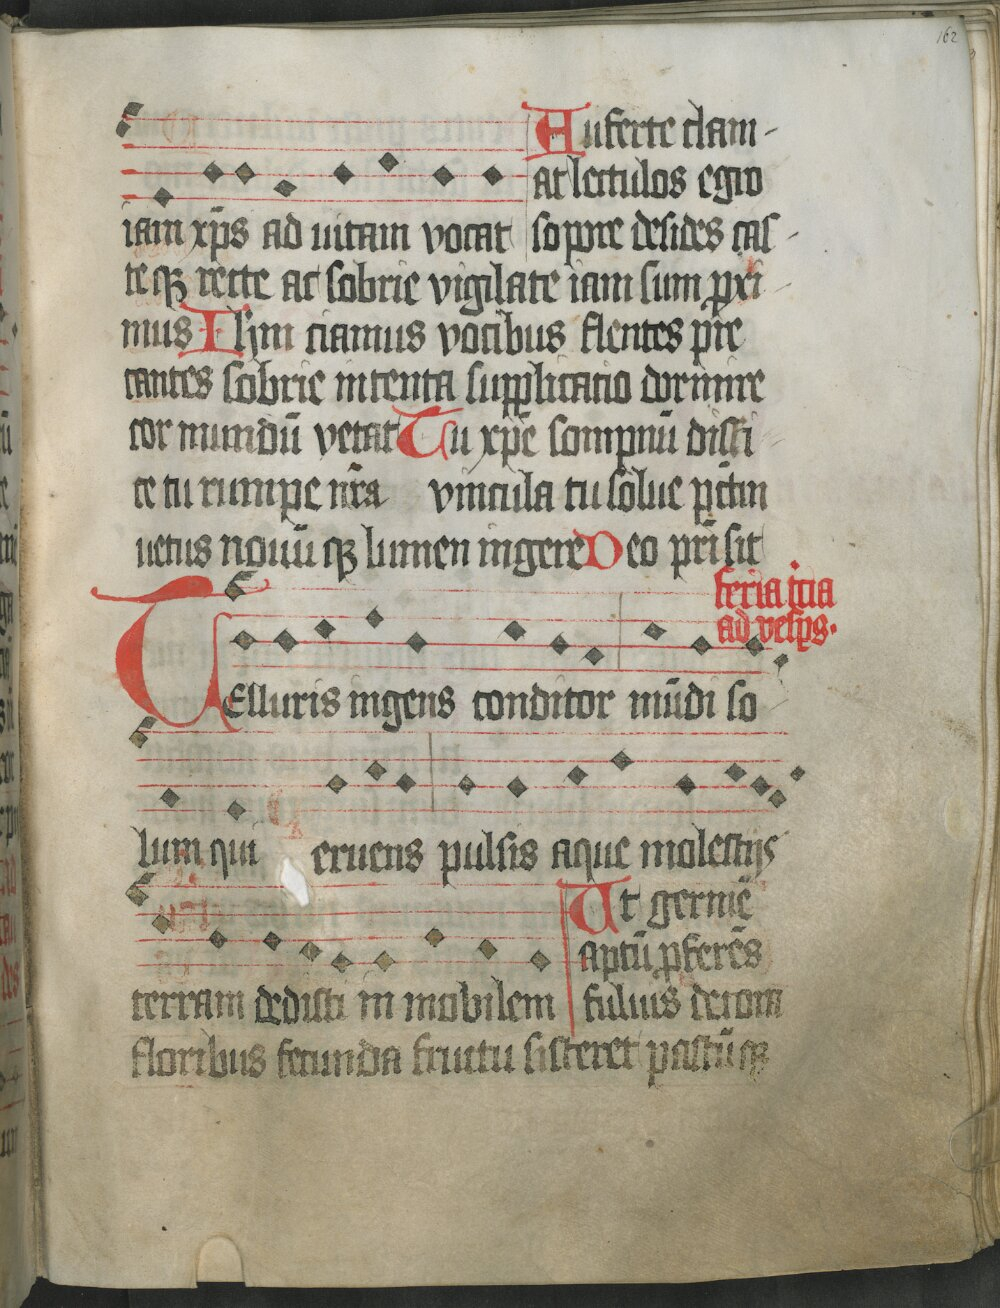 162
Auferte clam-
at lectulos egro
iam xp̄s ad uitam vocat
sopore desides cas-
te qꝫ recte ac sobrie vigilate iam sum ꝓxi
mus Ih̄m ciamus vocibus flentes pre
cantes sobrie intenta supplicatio dormire
cor mundū vetat Tu xp̄e sompnū dissi
ce tu rumpe nr̄a vincula tu solue pctm̄
uetus nouū qꝫ lumen ingere Deo pr̄i sit
feria ꝯcia
ad vesp̄s.
Telluris ingens conditor mūdi so
lum qui eruens pulsis aque molestijs
Ut germē
aptū ꝓferēs
terram dedisti in mobilem
fuluis decora
floribus fecunda fructu sisteret pastū qꝫ